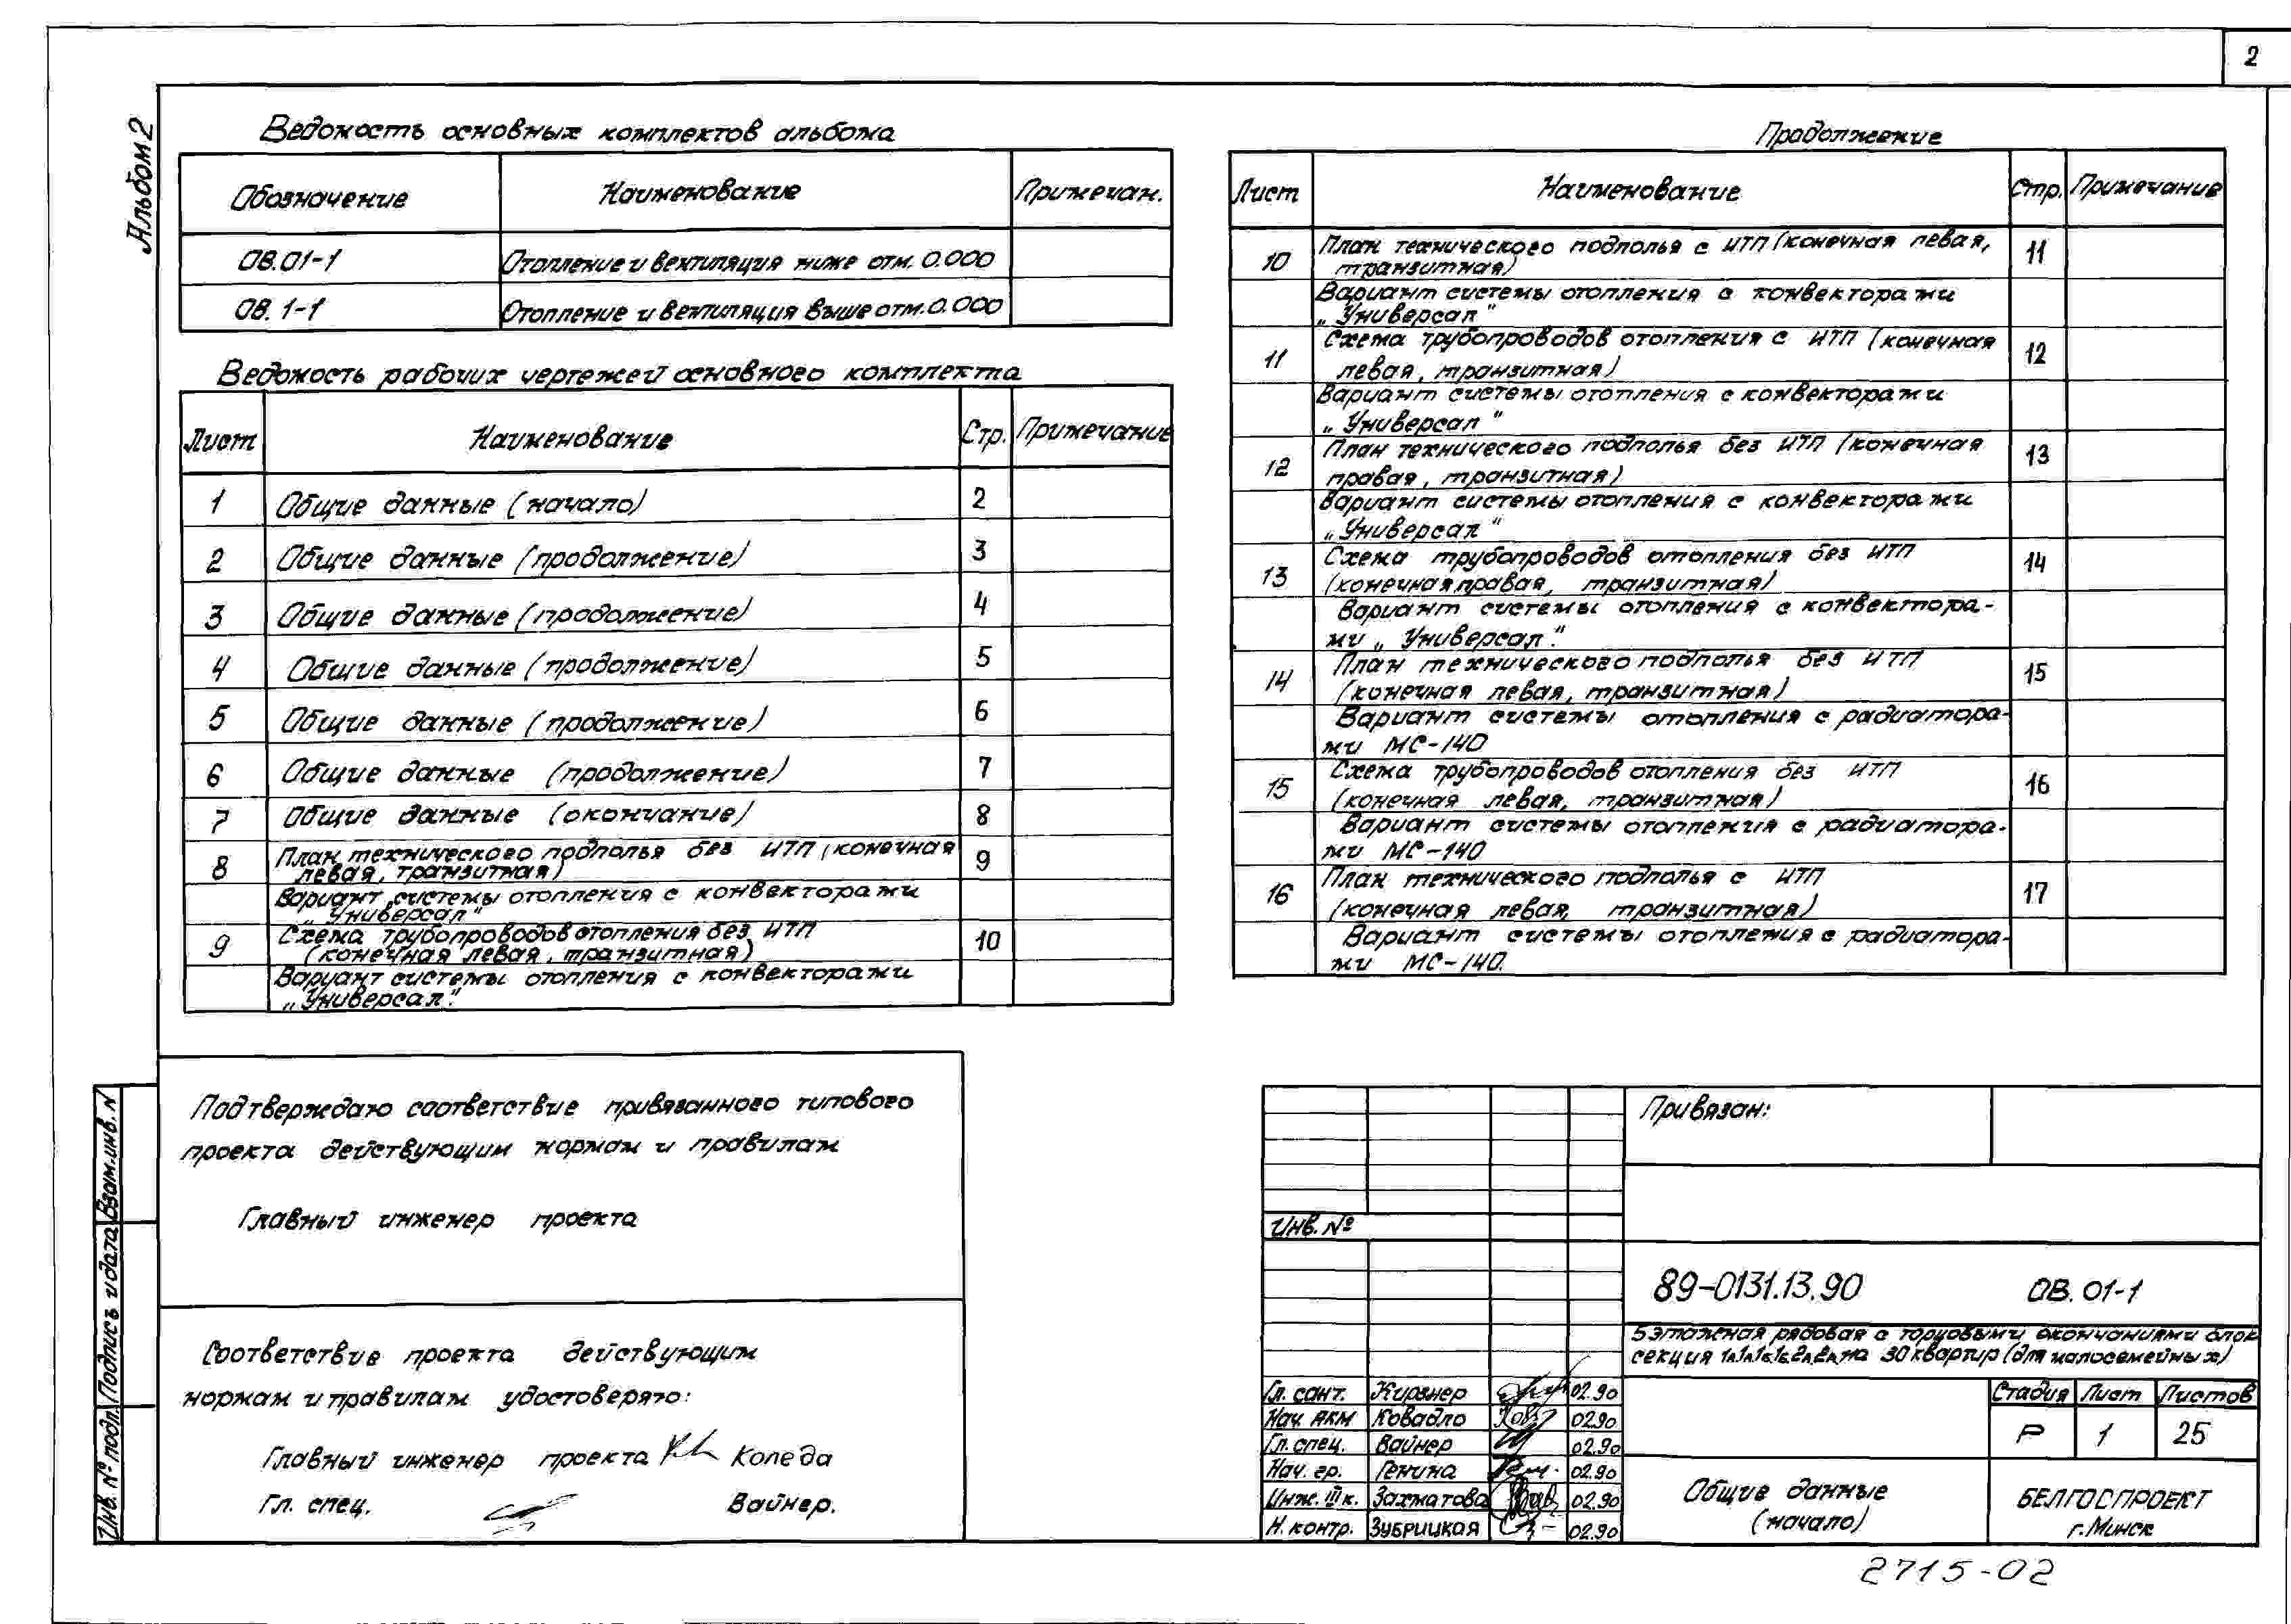 2
Альбом 2
Ведомость основных комплектов альбома
Обозначение Наименование Примечан.
ОВ.01-1 Отопление и вентиляция ниже отм. 0.000
ОВ. 1-1 Отопление и вентиляция выше отм. 0.000
Ведомость рабочих чертежей основного комплекта
Лист Наименование Стр. Примечание
1 Общие данные (начало) 2
2 Общие данные (продолжение) 3
3 Общие данные (продолжение) 4
4 Общие данные (продолжение) 5
5 Общие данные (продолжение) 6
6 Общие данные (продолжение) 7
7 Общие данные (окончание) 8
8 План технического подполья без ИТП (конечная 9
левая, транзитная)
Вариант системы отопления с конвекторами
„Универсал"
9 Схема трубопроводов отопления без ИТП 10
(конечная левая, транзитная)
Вариант системы отопления с конвекторами
„Универсал".
Продолжение
Лист Наименование Стр. Примечание
10 План технического подполья с ИТП (конечная левая, 11
транзитная)
Вариант системы отопления с конвекторами
„Универсал"
11 Схема трубопроводов отопления с ИТП (конечная 12
левая, транзитная)
Вариант системы отопления с конвекторами
„Универсал"
12 План технического подполья без ИТП (конечная 13
правая, транзитная)
Вариант системы отопления с конвекторами
„Универсал"
13 Схема трубопроводов отопления без ИТП 14
(конечная правая, транзитная)
Вариант системы отопления с конвектора-
ми „Универсал".
14 План технического подполья без ИТП 15
(конечная левая, транзитная)
Вариант системы отопления с радиатора-
ми МС-140
15 Схема трубопроводов отопления без ИТП 16
(конечная левая, транзитная)
Вариант системы отопления с радиатора-
ми МС-140
16 План технического подполья с ИТП 17
(конечная левая, транзитная)
Вариант системы отопления с радиатора-
ми МС-140.
Подтверждаю соответствие привязанного типового
проекта действующим нормам и правилам
Главный инженер проекта
Соответствие проекта действующим
нормам и правилам удостоверяю:
Главный инженер проекта Коледа
Гл. спец. Вайнер.
Взам.инв. N
Подпись и дата
Инв. № подл.
Привязан:
Инв. №
89-0131.13.90 ОВ. 01-1
5 этажная рядовая с торцовыми окончаниями блок
секция на 30 квартир (для малосемейных)
Гл. сант. Кирзнер 02.90
Нач. АКМ Ковадло 02.90
Гл. спец. Вайнер 02.90
Нач. гр. Генина 02.90
Инж. III к. Захматова 02.90
Н. контр. Зубрицкая 02.90
Стадия Лист Листов
Р 1 25
Общие данные
(начало)
БЕЛГОСПРОЕКТ
г. Минск
2715-02